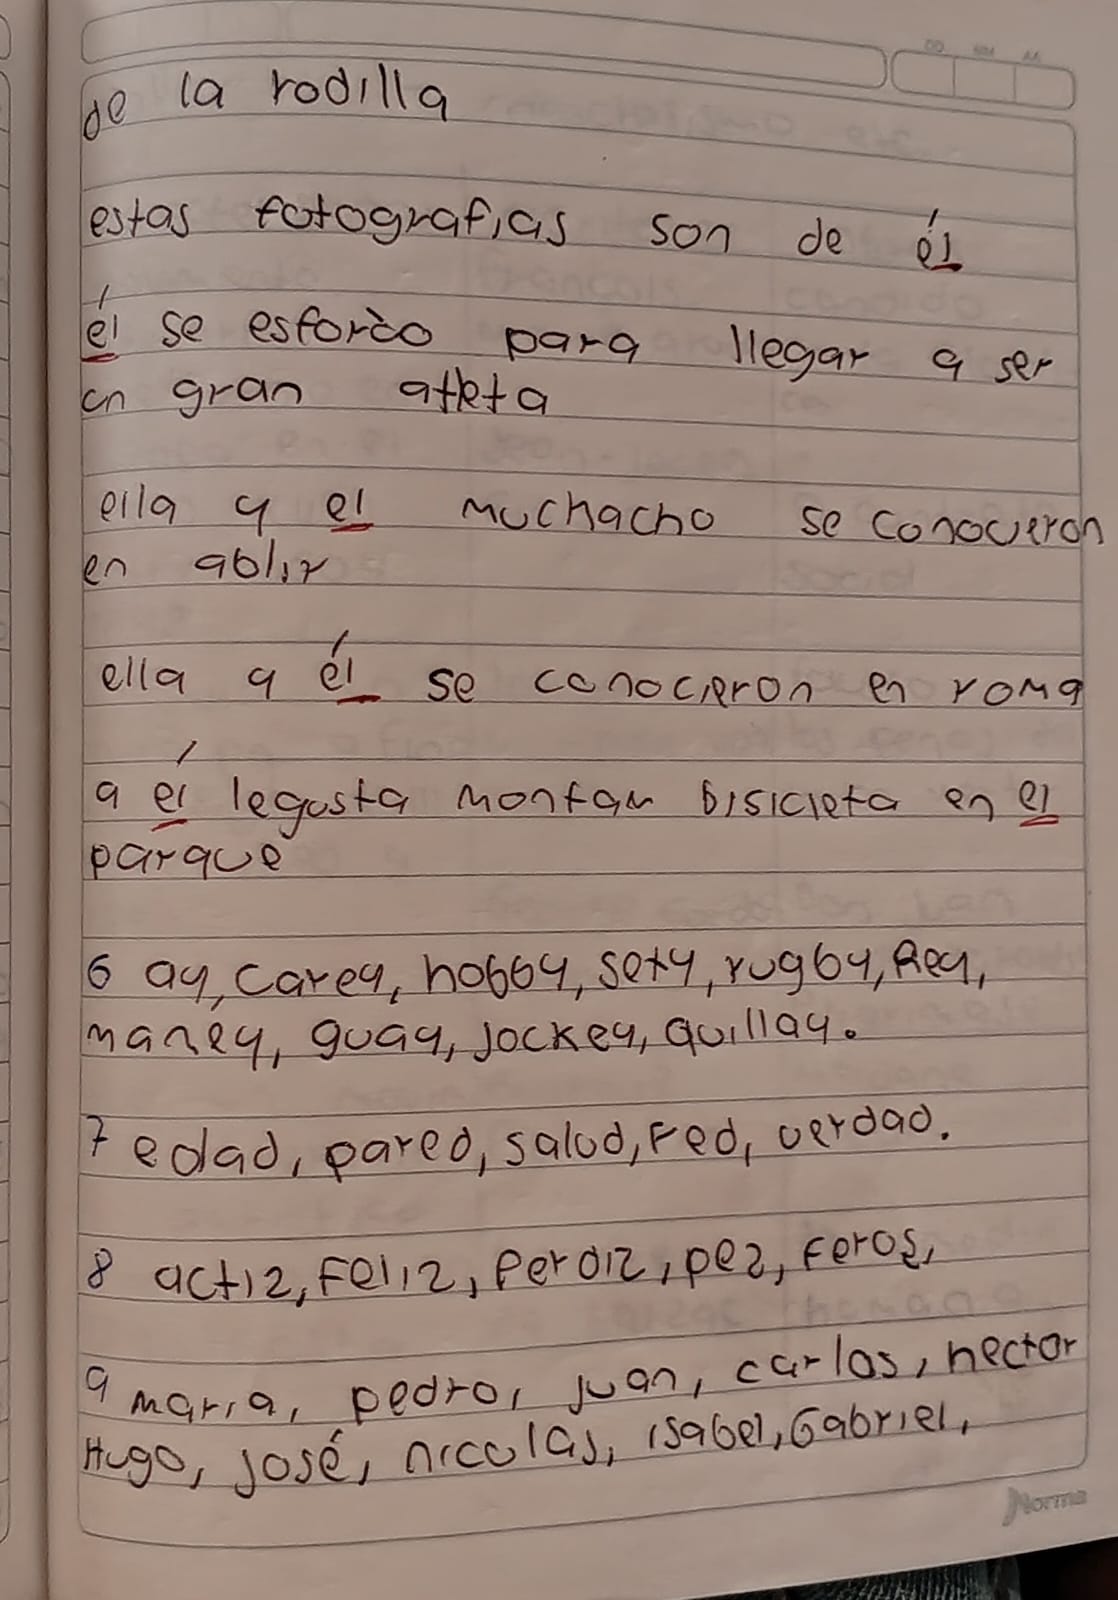 DD MM AA
de la rodilla
estas fotografias son de él
él se esforzo para llegar a ser
un gran atleta
ella y el muchacho se conocieron
en ablir
ella y él se conocieron en roma
a él legusta montar bisicleta en el
parque
6 ay, carey, hobby, sexy, rugby, Rey,
maney, guay, jockey, quillay.
7 edad, pared, salud, red, verdad.
8 actiz, Feliz, Perdiz, pez, Feroz,
9 maria, pedro, juan, carlos, hector
Hugo, josé, nicolas, isabel, Gabriel,
Norma